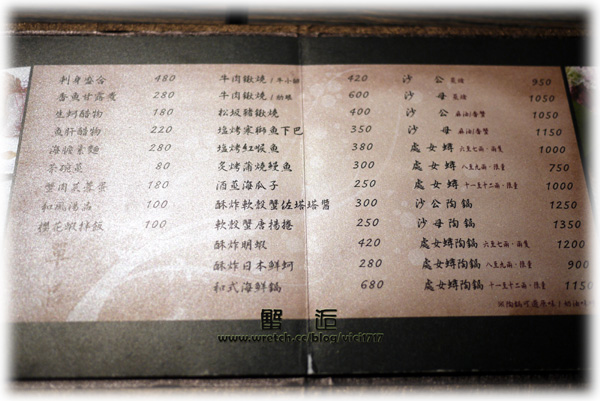 刺身盛合 480
香魚甘露煮 280
生蚵醋物 180
魚肝醋物 220
海波素麵 280
茶碗蒸 80
蟹肉芙蓉蛋 180
和風湯品 100
櫻花蝦拌飯 100
單
牛肉鍬燒/牛小排 420
牛肉鍬燒 600
松坂豬鍬燒 400
塩烤寒鰤魚下巴 350
塩烤紅喉魚 380
炙烤蒲燒鰻魚 300
酒蒸海瓜子 250
酥炸軟殼蟹佐塔塔醬 300
軟殼蟹唐揚捲 250
酥炸明蝦 420
酥炸日本鮮蚵 280
和式海鮮鍋 680
沙公 950
沙母 1050
沙公 麻油/香蟹 1050
沙母 麻油/香蟹 1150
處女蟳 六至七兩·兩隻 1000
處女蟳 八至九兩·限量 750
處女蟳 十一至十二兩·限量 1000
沙公陶鍋 1250
沙母陶鍋 1350
處女蟳陶鍋 六至七兩·兩隻 1200
處女蟳陶鍋 八至九兩·限量 900
處女蟳陶鍋 十一至十二兩·限量 1150
蟹逅
www.wretch.cc/blog/vici1717